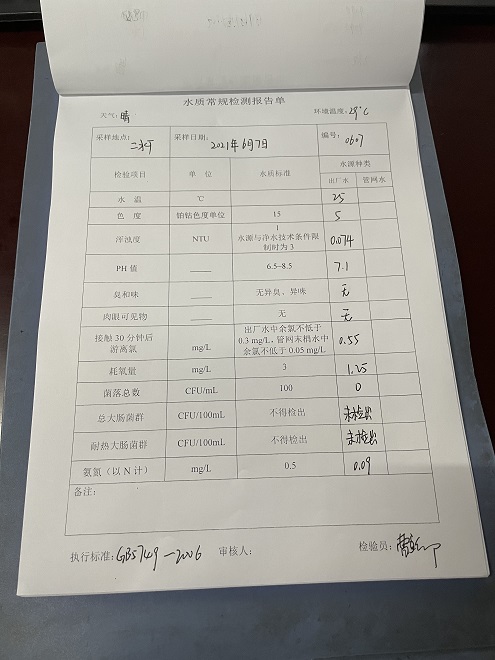 水质常规检测报告单
天气: 晴 环境温度: 29°C
采样地点: 二水厂 采样日期: 2021年6月7日 编号: 0607
检验项目 单 位 水质标准 水源种类
出厂水 管网水
水 温 ℃ 25
色 度 铂钴色度单位 15 5
浑浊度 NTU 1
水源与净水技术条件限
制时为 3 0.074
PH 值 —— 6.5-8.5 7.1
臭和味 —— 无异臭、异味 无
肉眼可见物 —— 无 无
接触 30 分钟后
游离氯 mg/L 出厂水中余氯不低于
0.3 mg/L，管网末梢水中
余氯不低于 0.05 mg/L 0.55
耗氧量 mg/L 3 1.25
菌落总数 CFU/mL 100 0
总大肠菌群 CFU/100mL 不得检出 未检出
耐热大肠菌群 CFU/100mL 不得检出 未检出
氨氮（以 N 计） mg/L 0.5 0.09
备注:
执行标准: GB5749—2006 审核人: 检验员: